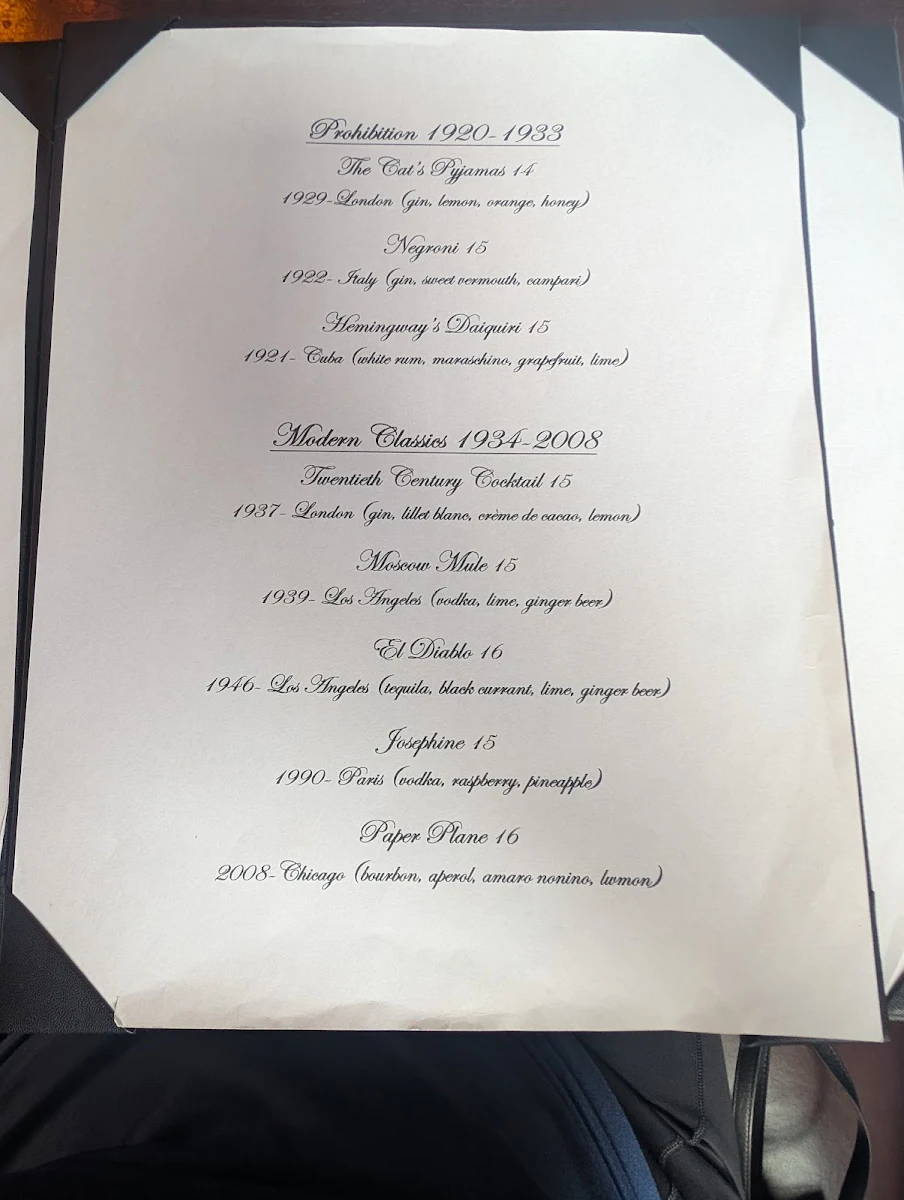 Prohibition 1920-1933
The Cat's Pyjamas 14
1929-London (gin, lemon, orange, honey)
Negroni 15
1922- Italy (gin, sweet vermouth, campari)
Hemingway's Daiquiri 15
1921- Cuba (white rum, maraschino, grapefruit, lime)
Modern Classics 1934-2008
Twentieth Century Cocktail 15
1937- London (gin, lillet blanc, crème de cacao, lemon)
Moscow Mule 15
1939- Los Angeles (vodka, lime, ginger beer)
El Diablo 16
1946- Los Angeles (tequila, black currant, lime, ginger beer)
Josephine 15
1990- Paris (vodka, raspberry, pineapple)
Paper Plane 16
2008-Chicago (bourbon, aperol, amaro nonino, lwmon)